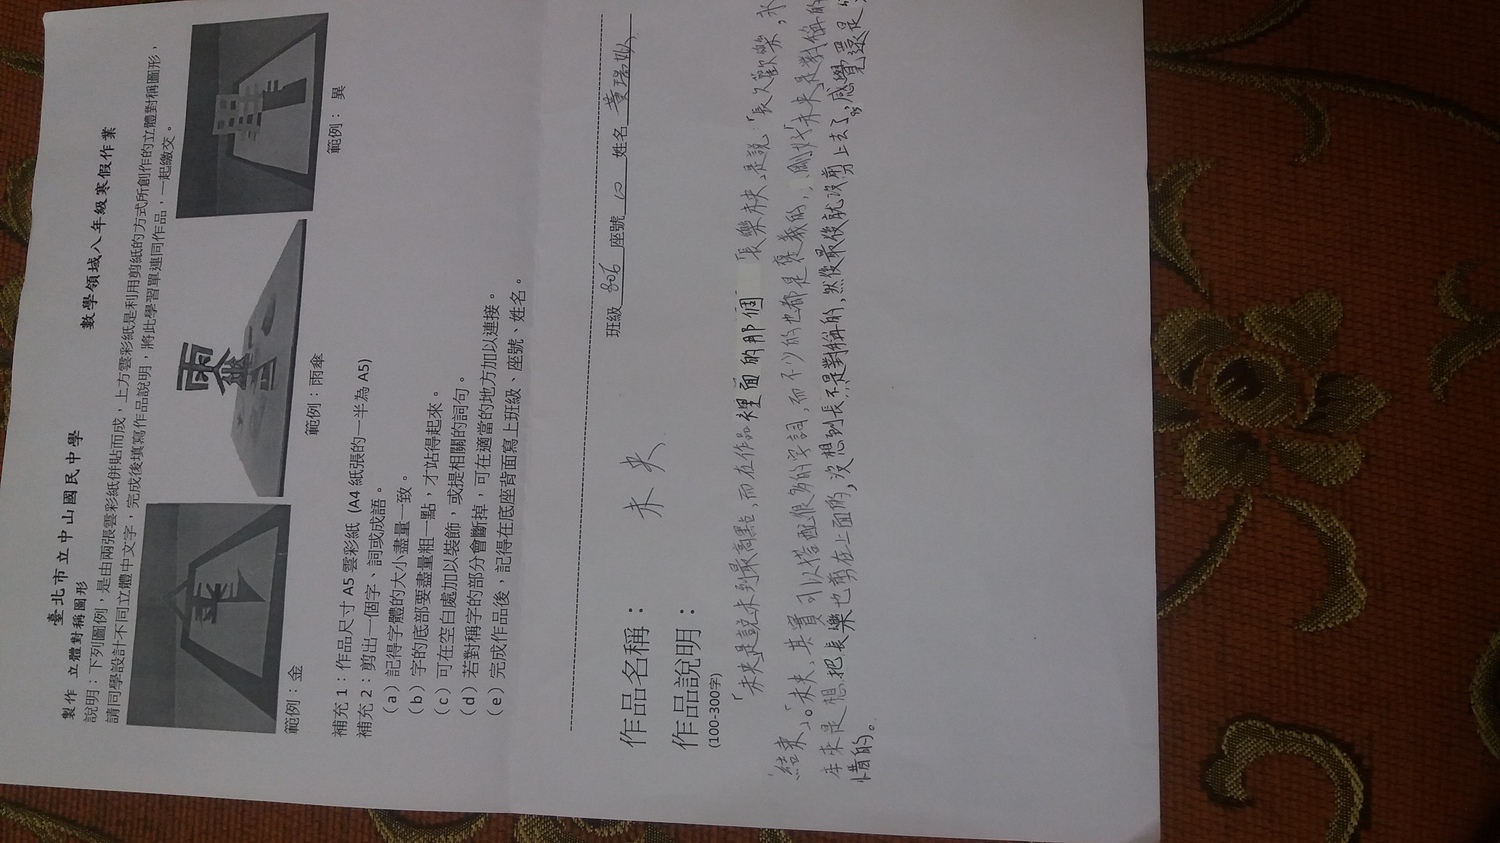 臺北市立中山國民中學　數學領域八年級寒假作業
製作 立體對稱圖形
說明：下列圖例，是由兩張雲彩紙併貼而成，上方雲彩紙是利用剪紙的方式所創作的立體對稱圖形，
請同學設計不同立體中文字，完成後填寫作品說明，將此學習單連同作品，一起繳交。
雨
範例：金
範例：雨傘
範例：異
補充1：作品尺寸 A5 雲彩紙 (A4 紙張的一半為 A5)
補充2：剪出一個字、詞或成語。
(a) 記得字體的大小盡量一致。
(b) 字的底部要盡量粗一點，才站得起來。
(c) 可在空白處加以裝飾，或提相關的詞句。
(d) 若對稱字的部分會斷掉，可在適當的地方加以連接。
(e) 完成作品後，記得在底座背面寫上班級、座號、姓名。
班級 806 座號 10 姓名 黃瑞
作品名稱： 未央
作品說明：
(100-300字)
「未央」是說未到最高點，而在作品裡面的那個「長樂未央」是說：「長久歡樂，永
結束」。「未央」其實可以搭配很多的字詞，而不少的也都是褒義的，剛好「未央」是對稱的
本來是想把長樂也剪在上面的，沒想到長不是對稱的，然後最後就沒剪上去了，感覺還是
惜的。